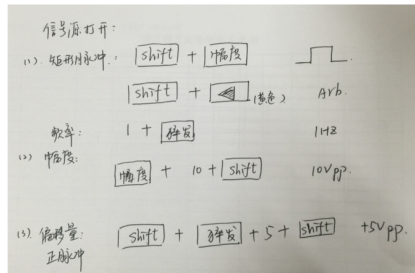 信号源打开:
(1) 矩形脉冲: shift + 幅度
shift + (黄色) Arb.
频率: 1 + 猝发 1HZ
(2) 幅度:
幅度 + 10 + shift 10Vpp.
(3) 偏移量: shift + 猝发 + 5 + shift +5Vpp.
正脉冲